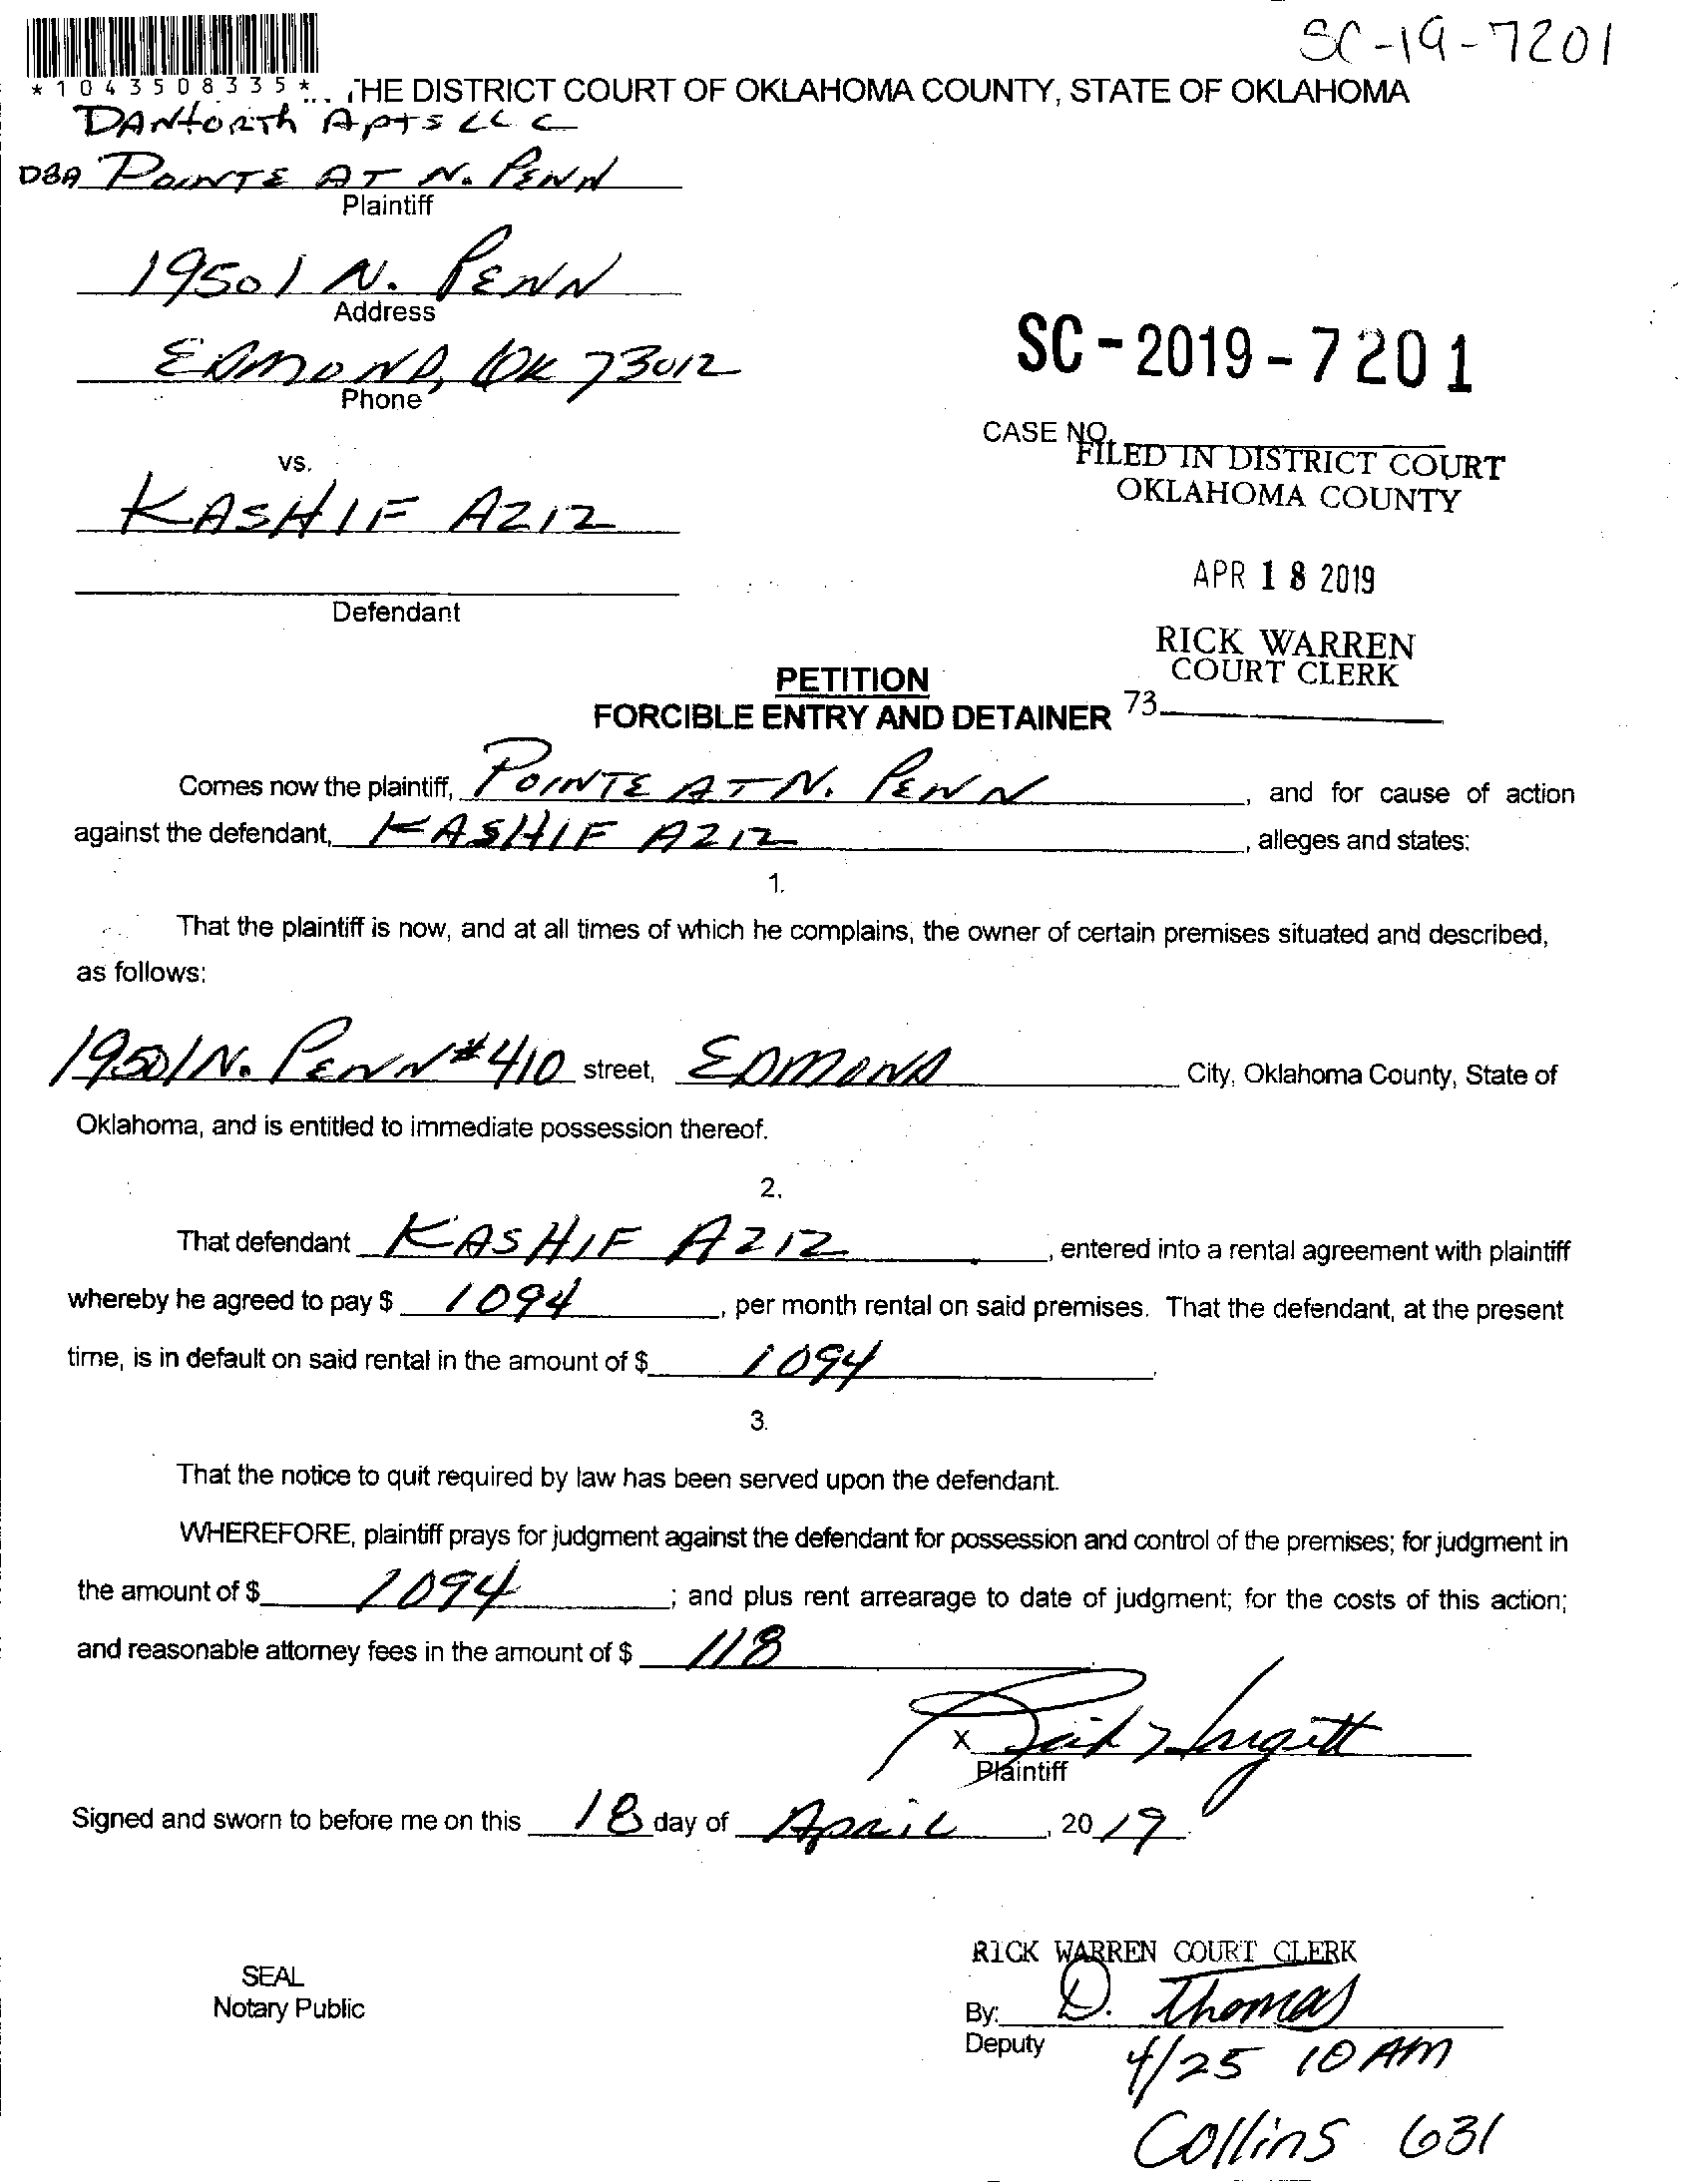 SC-19-7201
*1043508335*
THE DISTRICT COURT OF OKLAHOMA COUNTY, STATE OF OKLAHOMA
DANforth Apts LLC
DBA POINTE AT N. PENN
Plaintiff
19501 N. PENN
Address
EDMOND, OK 73012
Phone
SC-2019-7201
CASE NO.
FILED IN DISTRICT COURT
OKLAHOMA COUNTY
vs.
KASHIF AZIZ
APR 18 2019
Defendant
RICK WARREN
COURT CLERK
PETITION
FORCIBLE ENTRY AND DETAINER
73
Comes now the plaintiff, POINTE AT N. PENN, and for cause of action
against the defendant, KASHIF AZIZ, alleges and states:
1.
That the plaintiff is now, and at all times of which he complains, the owner of certain premises situated and described,
as follows:
19501 N. PENN #410 street, EDMOND City, Oklahoma County, State of
Oklahoma, and is entitled to immediate possession thereof.
2.
That defendant KASHIF AZIZ, entered into a rental agreement with plaintiff
whereby he agreed to pay $ 1094, per month rental on said premises. That the defendant, at the present
time, is in default on said rental in the amount of $ 1094.
3.
That the notice to quit required by law has been served upon the defendant.
WHEREFORE, plaintiff prays for judgment against the defendant for possession and control of the premises; for judgment in
the amount of $ 1094; and plus rent arrearage to date of judgment; for the costs of this action;
and reasonable attorney fees in the amount of $ 118
X
Plaintiff
Signed and sworn to before me on this 18 day of April, 2019.
RICK WARREN COURT CLERK
SEAL
Notary Public
By: D. Thomas
Deputy
4/25 10 AM
Collins 631